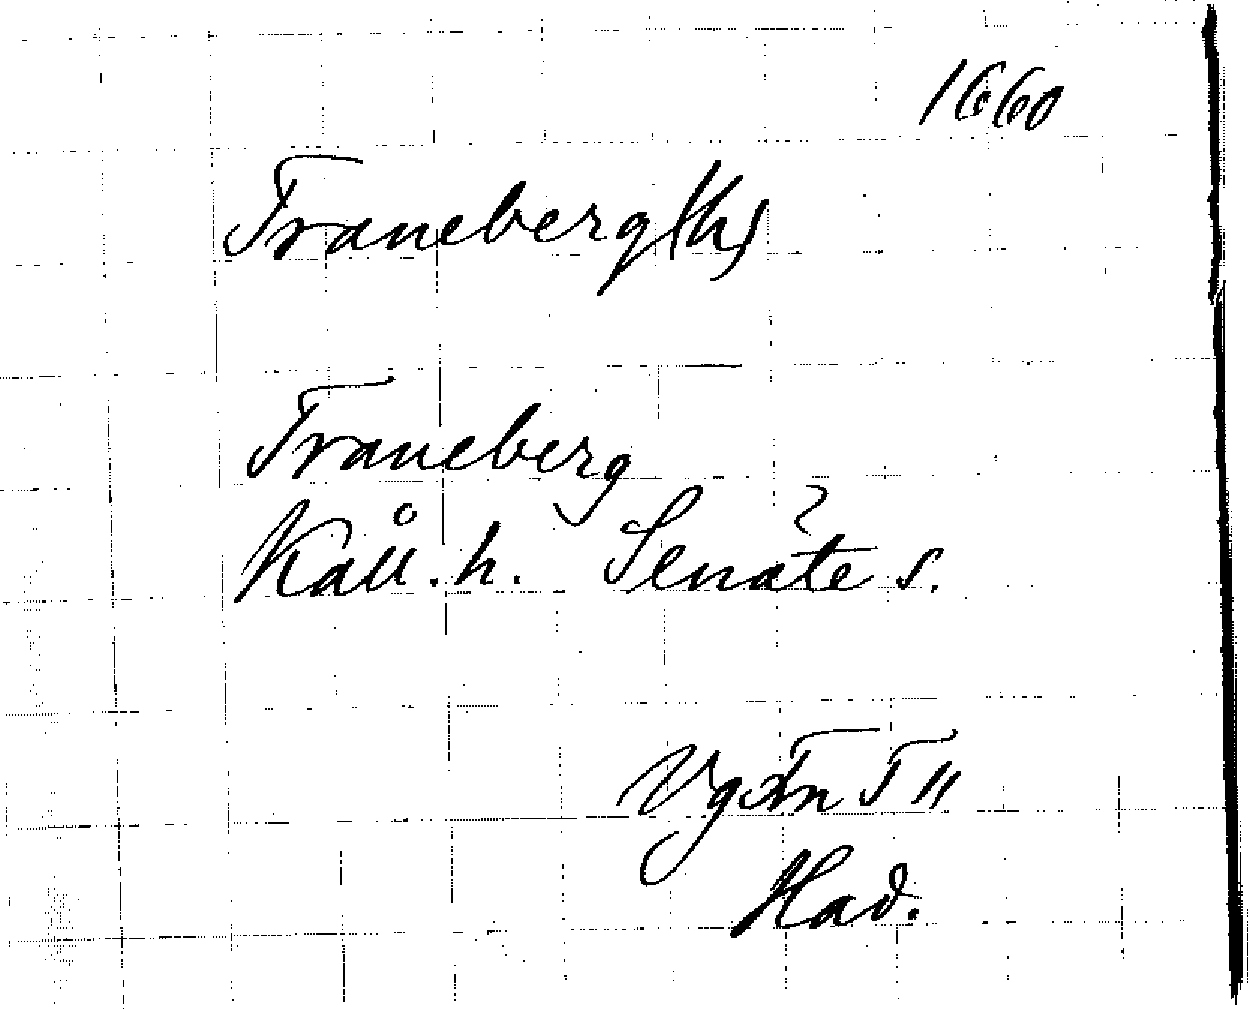 1660
Traneberg (h)
Traneberg
Kåll. h. Senäte s.
Vg Tn T II
Had.